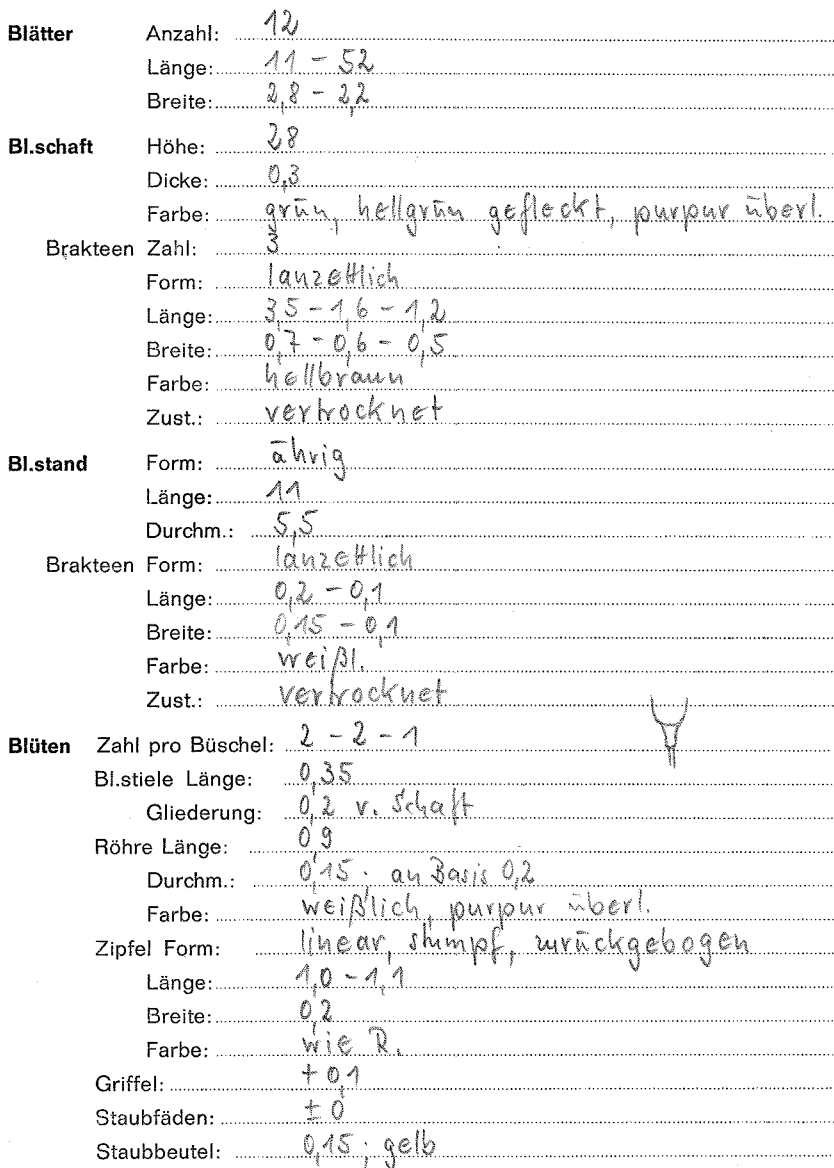 Blätter Anzahl: 12
Länge: 11 - 52
Breite: 2,8 - 2,2
Bl.schaft Höhe: 28
Dicke: 0,3
Farbe: grün, hellgrün gefleckt, purpur überl.
Brakteen Zahl: 3
Form: lanzettlich
Länge: 3,5 - 1,6 - 1,2
Breite: 0,7 - 0,6 - 0,5
Farbe: hellbraun
Zust.: vertrocknet
Bl.stand Form: ährig
Länge: 11
Durchm.: 5,5
Brakteen Form: lanzettlich
Länge: 0,2 - 0,1
Breite: 0,15 - 0,1
Farbe: weißl.
Zust.: vertrocknet
Blüten Zahl pro Büschel: 2 - 2 - 1
Bl.stiele Länge: 0,35
Gliederung: 0,2 v. Schaft
Röhre Länge: 0,9
Durchm.: 0,15 ; an Basis 0,2
Farbe: weißlich, purpur überl.
Zipfel Form: linear, stumpf, zurückgebogen
Länge: 1,0 - 1,1
Breite: 0,2
Farbe: wie R.
Griffel: + 0,1
Staubfäden: ± 0
Staubbeutel: 0,15 ; gelb